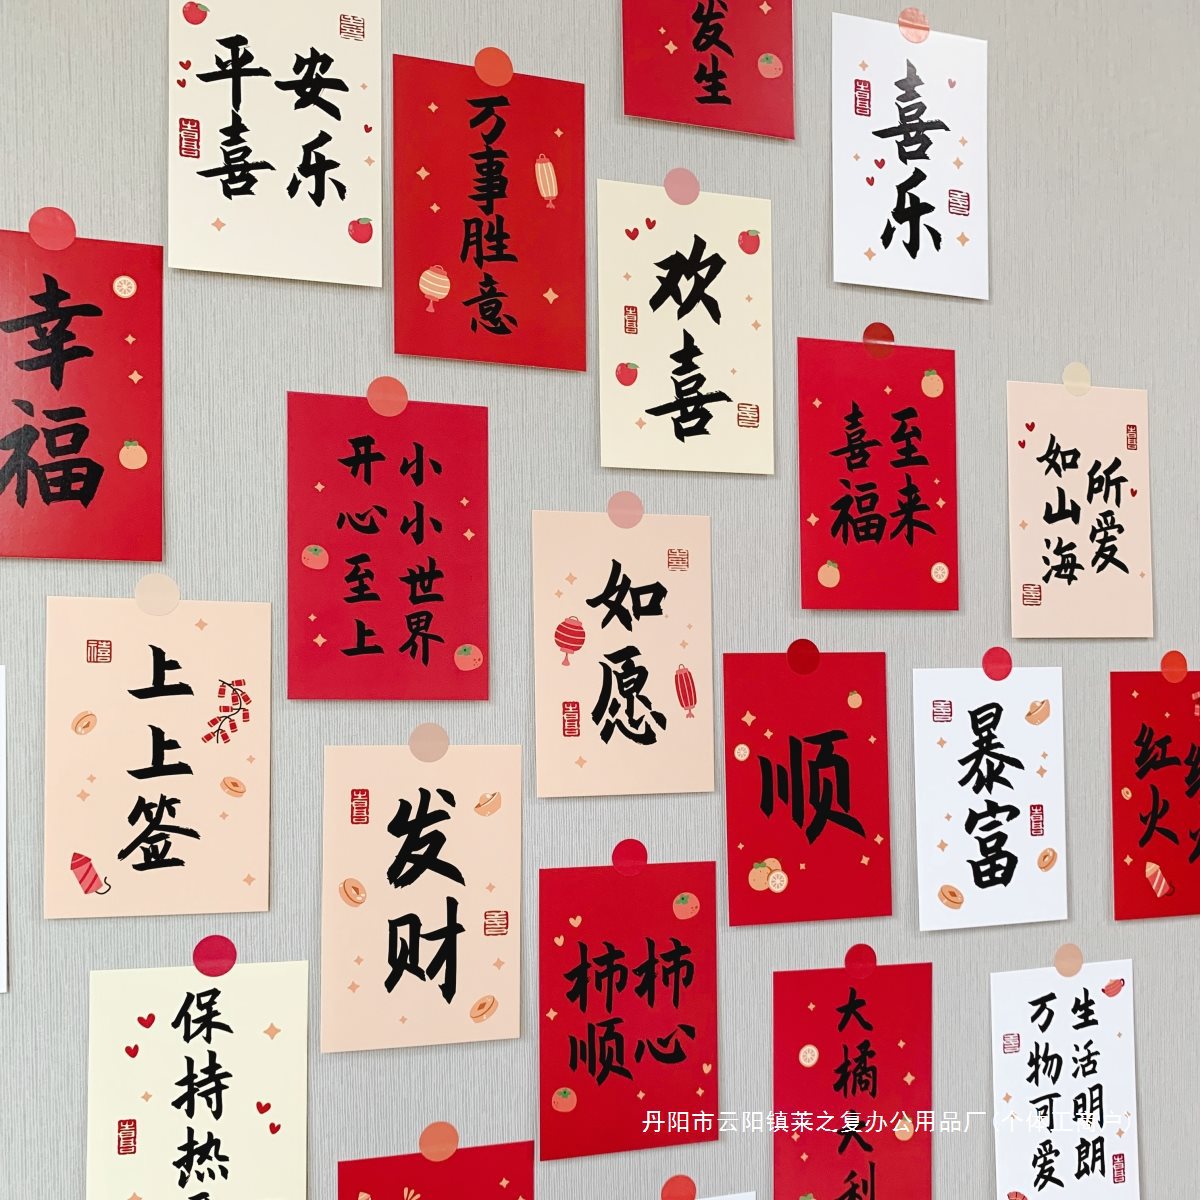 平安
喜乐
万事胜意
发生
喜乐
幸福
欢喜
小小世界
开心至上
至来
喜福
所爱
如山海
上上签
如愿
发财
顺
暴富
红
火
柿柿
顺心
保持热
大橘大利
生活明朗
万物可爱
丹阳市云阳镇莱之复办公用品厂(个体工商户)